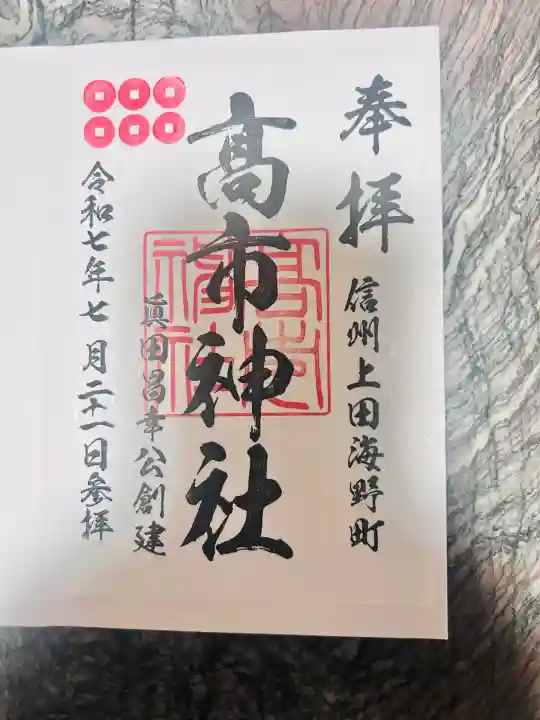 奉拝
信州上田海野町
髙市神社
眞田昌幸公創建
令和七年七月二十一日参拝